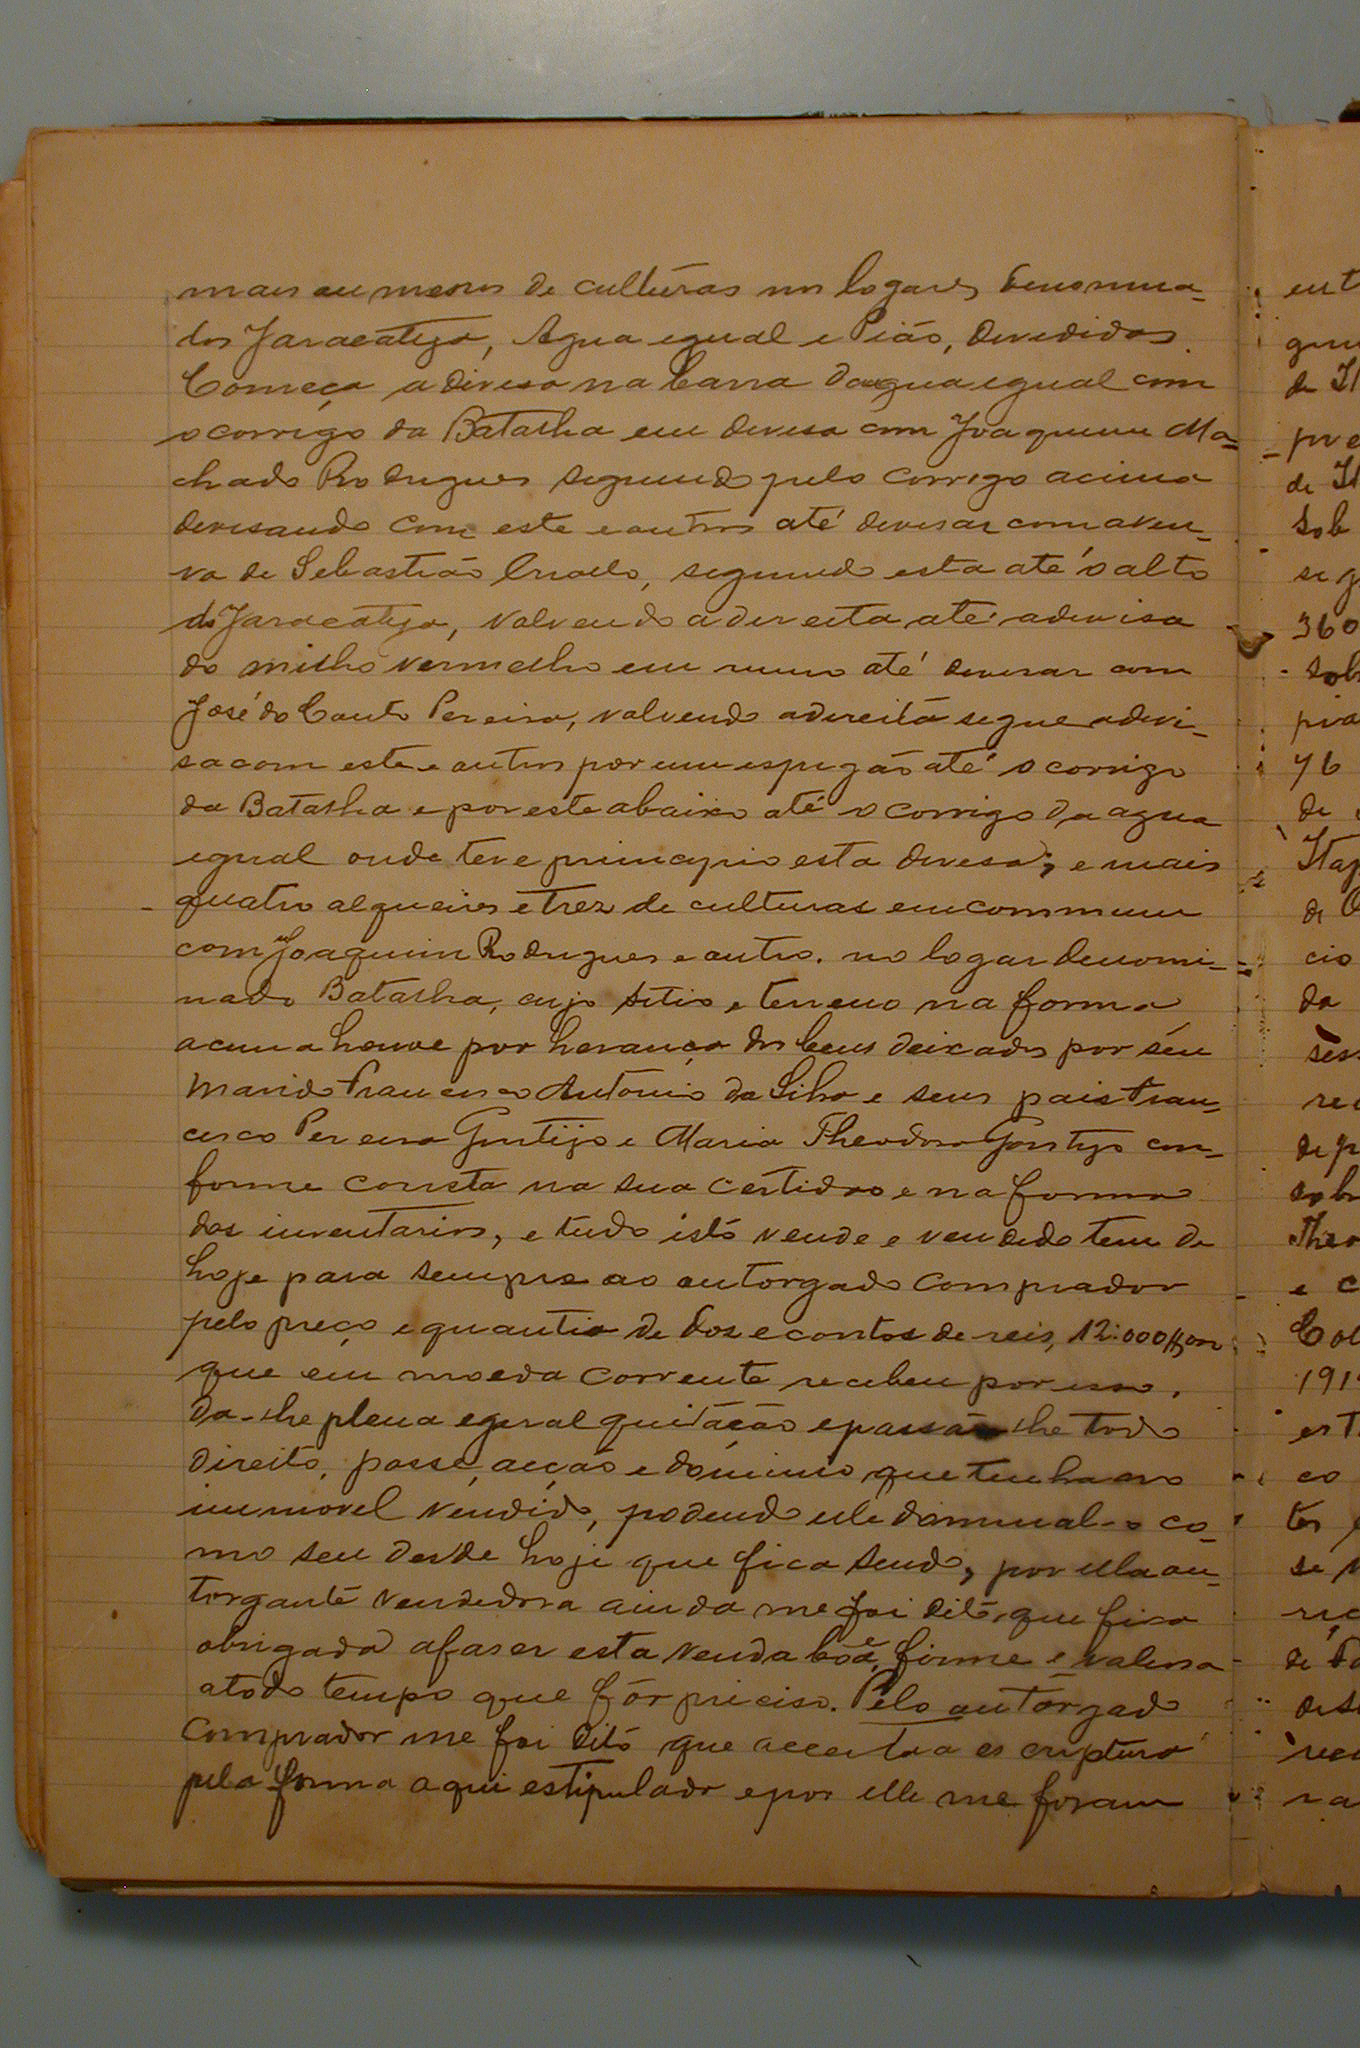 mais ou menos de culturas nos logares denomina-
dos Jaracatiga, Agua egual e Pião, devedidos.
Começa a divesa na barra dagua egual com
o corrigo da Batalha em devesa com Joaquim Ma-
chado Rodrigues seguindo pelo corrigo acima
devisando com este e outros até devisar com a viu-
va de Sebastião Criado, seguindo esta até o alto
do Jaracatiga, volvendo a dereita até a devisa
do milho vermelho em rumo até devisar com
José do Couto Pereira, volvendo a direita segue a devi-
sa com este e outros por um espigão até o corrigo
da Batalha e por este abaixo até o corrigo da agua
egual onde teve principio esta devesa; e mais
quatro alqueires e trez de culturas em commum
com Joaquim Rodrigues e outro. no logar denomi-
nado Batalha, cujo sitio e terreno na forma
acima houve por herança dos bens deixados por seu
marido Francisco Antonio da Silva e seus pais Fran-
cisco Pereira Gontijo e Maria Theodora Gontijo con-
forme consta na sua certidão e na forma
dos inventarios, e tudo isto vende e vendido tem de
hoje para sempre ao outorgado comprador
pelo preço e quantia de dose contos de reis, 12:000$000
que em moeda corrente recebeu por isso.
Da-lhe plena e geral quitação e passa lhe todo
direito, posse, acção e dominio que tenha no
immovel vendido, podendo elle dominal-o co-
mo seu desde hoje que fica sendo, por ella ou-
torgante vendedora ainda me foi dito que fica
obrigada a faser esta venda boa, firme e valiosa
a todo tempo que fôr preciso. Pelo outorgado
comprador me foi dito que acceitava a escriptura
pela forma aqui estipulado e por elle me foram